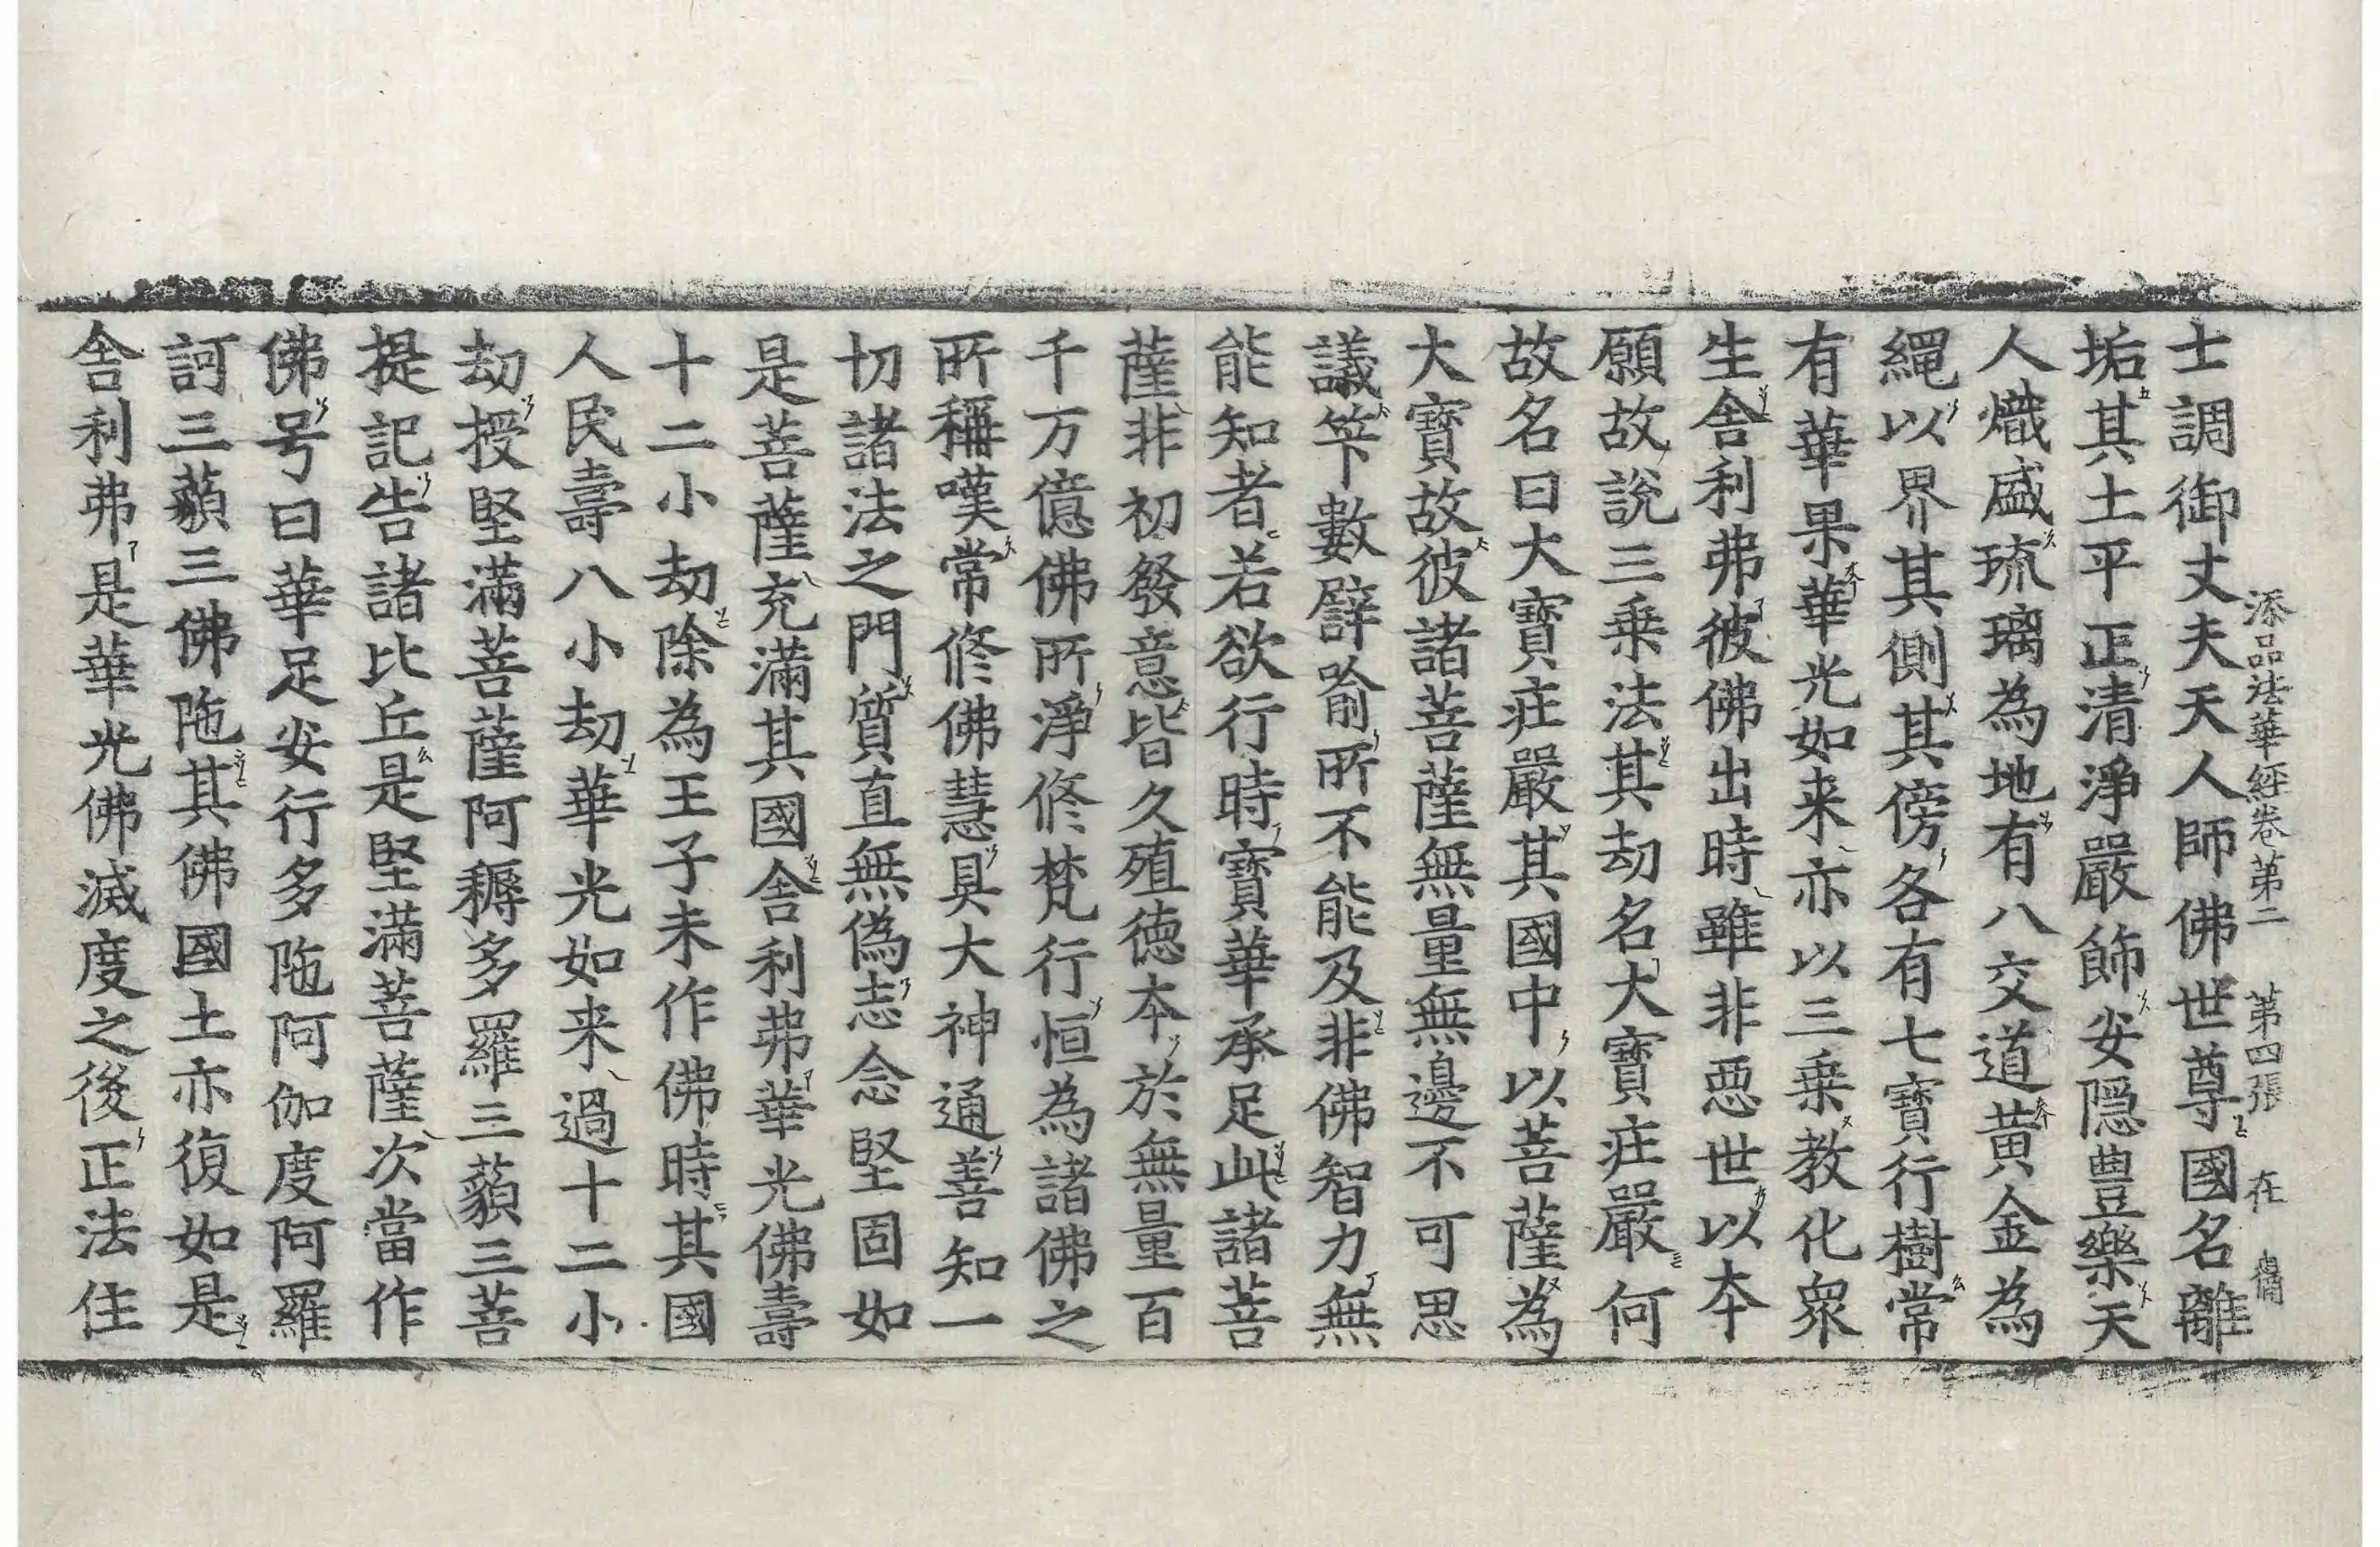 添品法華經卷第二 第四張 在
士調御丈夫天人師佛世尊國名離
垢其土平正清淨嚴飾安隱豊樂天
人熾盛琉璃為地有八交道黃金為
繩以界其側其傍各有七寶行樹常
有華果華光如来亦以三乗教化衆
生舍利弗彼佛出時雖非惡世以本
願故說三乗法其劫名大寶莊嚴何
故名曰大寶莊嚴其國中以菩薩為
大寶故彼諸菩薩無量無邊不可思
議筭數譬喻所不能及非佛智力無
能知者若欲行時寶華承足此諸菩
薩非初發意皆久殖德本於無量百
千万億佛所淨修梵行恒為諸佛之
所稱嘆常修佛慧具大神通善知一
切諸法之門質直無偽志念堅固如
是菩薩充滿其國舍利弗華光佛壽
十二小劫除為王子未作佛時其國
人民壽八小劫華光如来過十二小
劫授堅滿菩薩阿耨多羅三藐三菩
提記告諸比丘是堅滿菩薩次當作
佛号曰華足安行多陁阿伽度阿羅
訶三藐三佛陁其佛國土亦復如是
舍利弗是華光佛滅度之後正法住